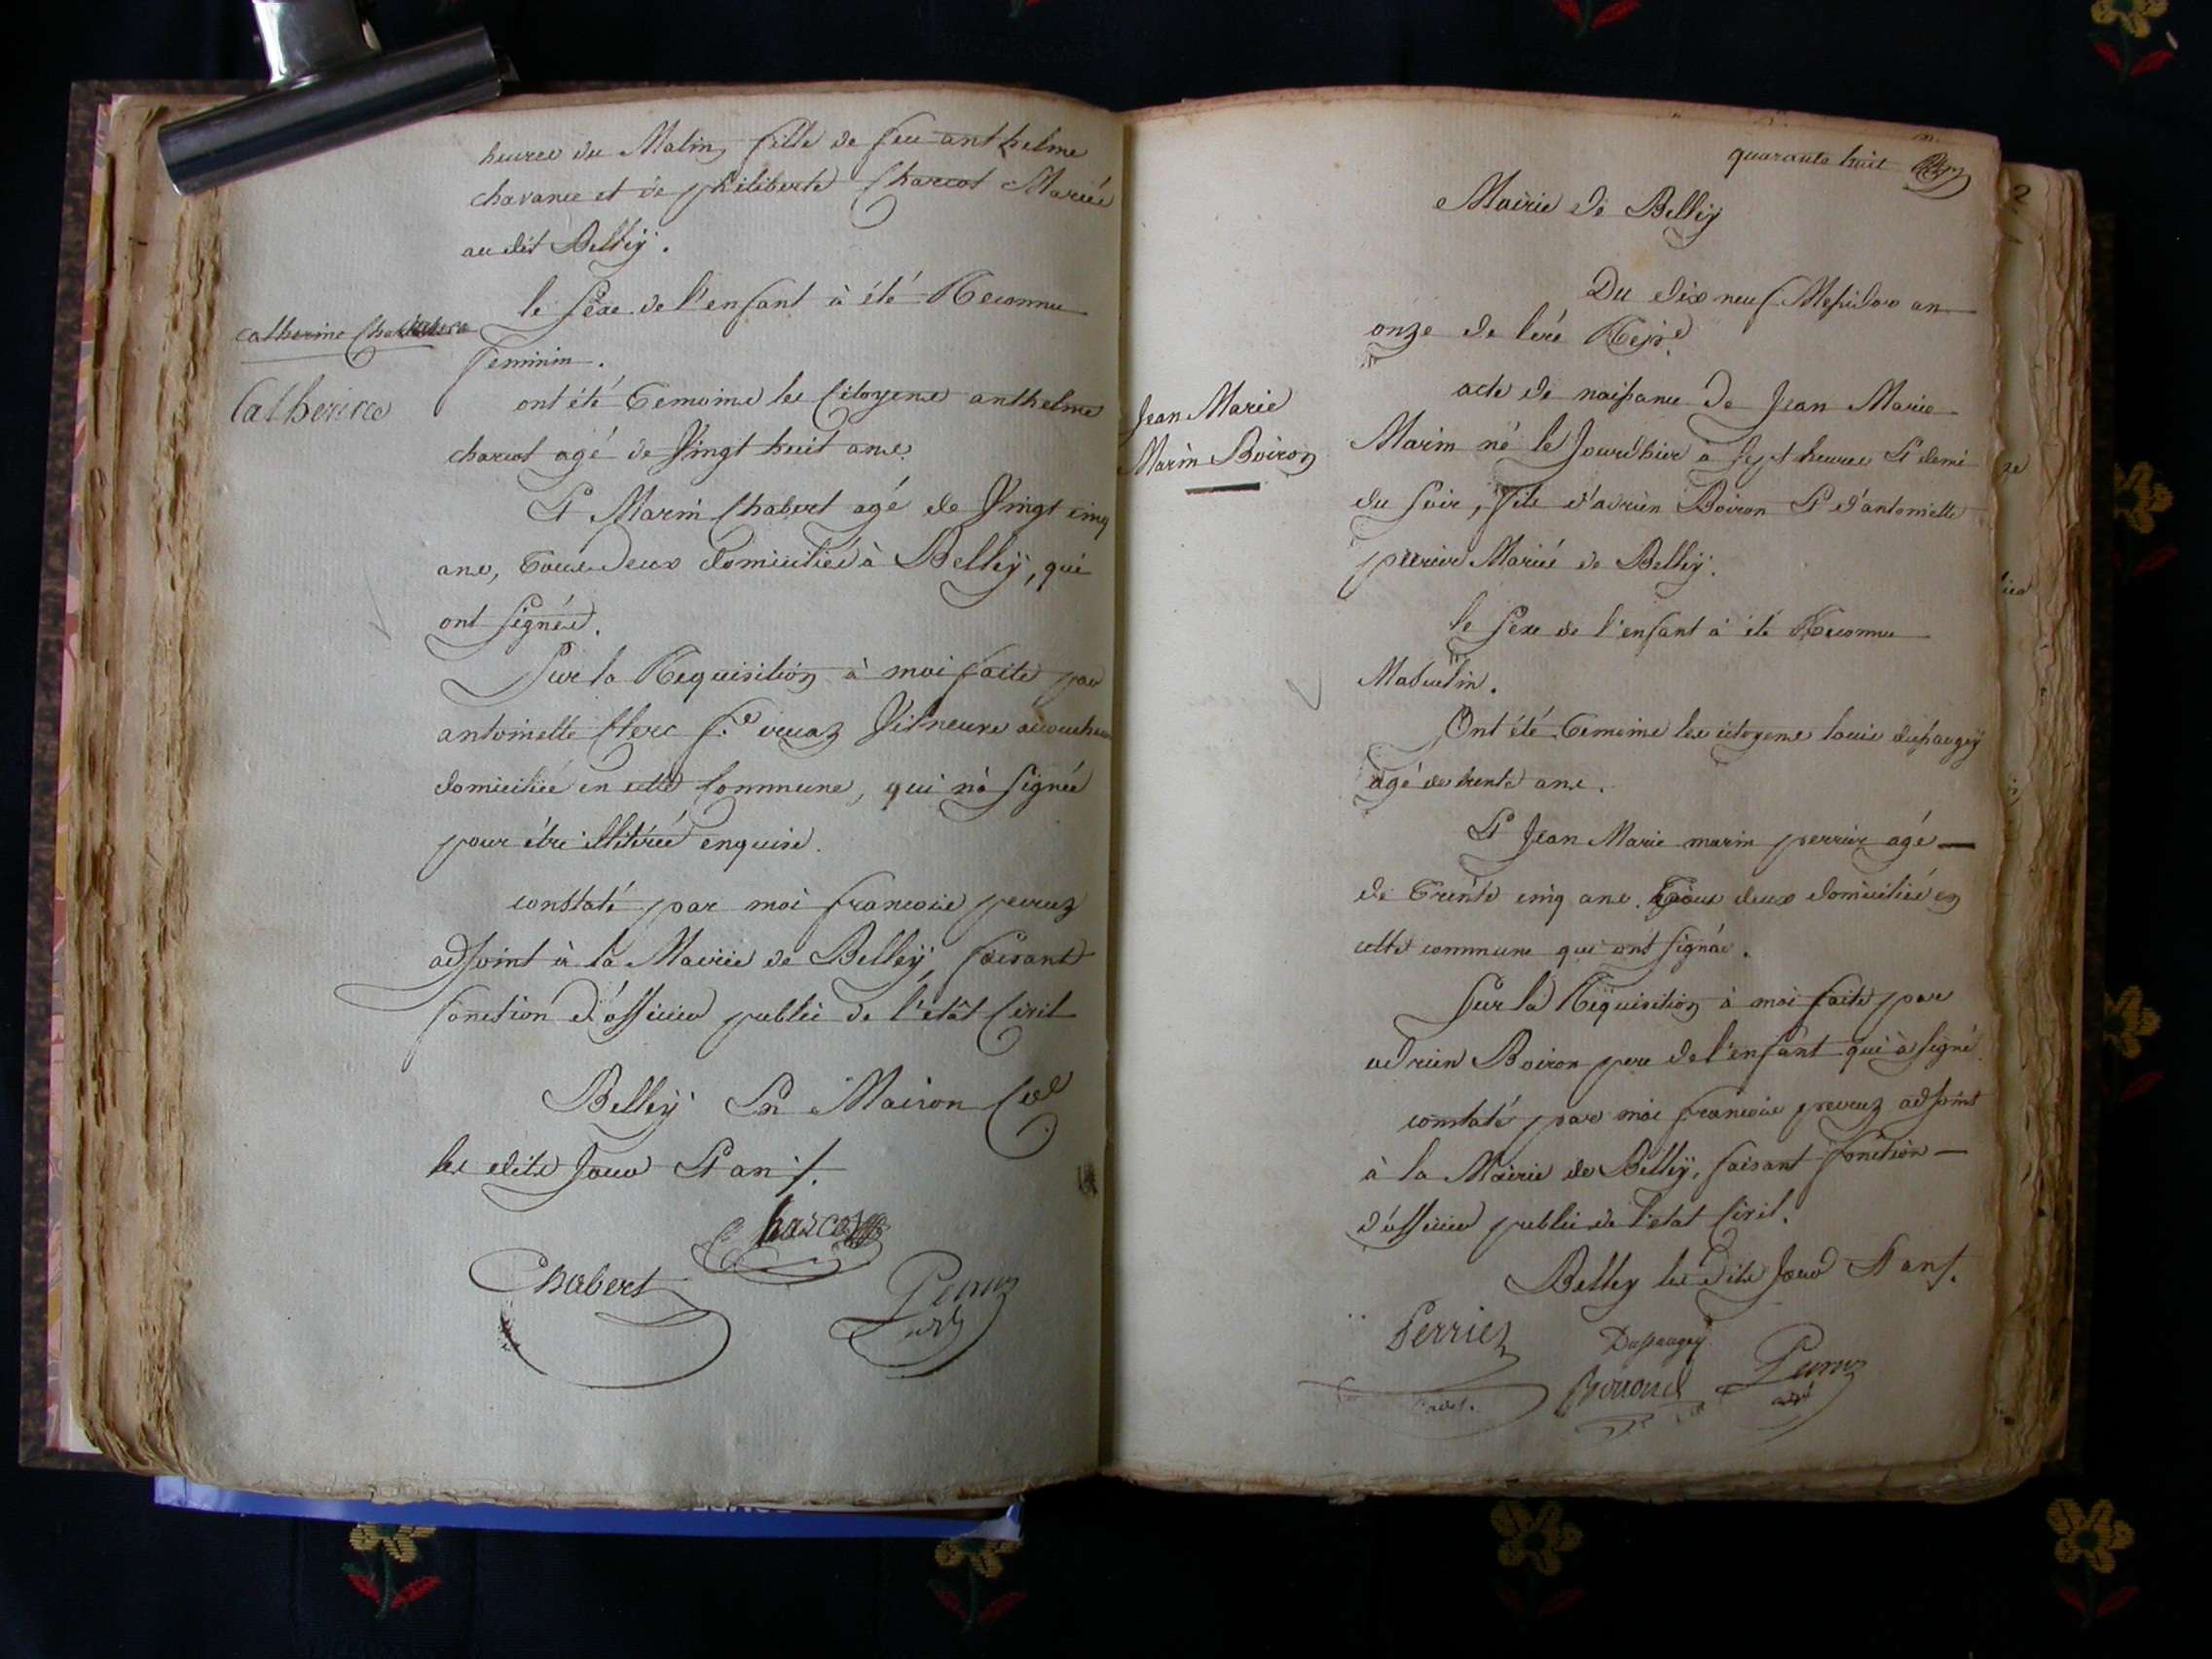 heures du Matin, fille de feu anthelme
chavance et de philiberte Charcot Mariés
audit Belleÿ.
le Sexe de l'enfant à été Reconnu
catherine
feminin.
Catherine
ont été Temoins les Citoyens anthelme
charcot agé de Vingt huit ans.
Et Marin Chabert agé de Vingt cinq
ans, Tous Deux domiciliés à Belleÿ, qui
ont Signés.
Sur la Requisition à moi faite par
antoinette Clerc f.e vuaz
domiciliée en cette Commune, qui n'à Signée
pour être illitérée enquise.
constaté par moi francois peruz
adjoint à la Mairie de Belleÿ, faisant
fonction d'officier public de l'etat Civil
Belleÿ En Maison
les dits Jour Et an ./.
Charcot
Chabert
Peruz
adj
quarante huit
Mairie de Belleÿ
Du dix neuf Messidor an
onze de l'ere
acte de naissance De Jean Marie
Jean Marie
Marin né le Jourdhier à Sept heures Et demi
Marin Boiron
du Soir, fils d'adrien Boiron Et d'antoinette
perrier Mariés de Belleÿ.
le Sexe de l'enfant à été Reconnu
Masculin.
Ont été Temoins les citoyens louis dupaugeÿ
agé de trente ans.
Et Jean Marie marin perrier agé
de Trente cinq ans. Tous deux domiciliés en
cette commune qui ont signés.
Sur la Requisition à moi faite par
adrien Boiron pere de l'enfant qui à signé
constaté par moi francois peruz adjoint
à la Mairie de Belleÿ, faisant fonction
d'officier public de l'etat Civil.
Belley les Dits Jour Et an ./.
Perrier
Dupaugeÿ
Peruz
adj